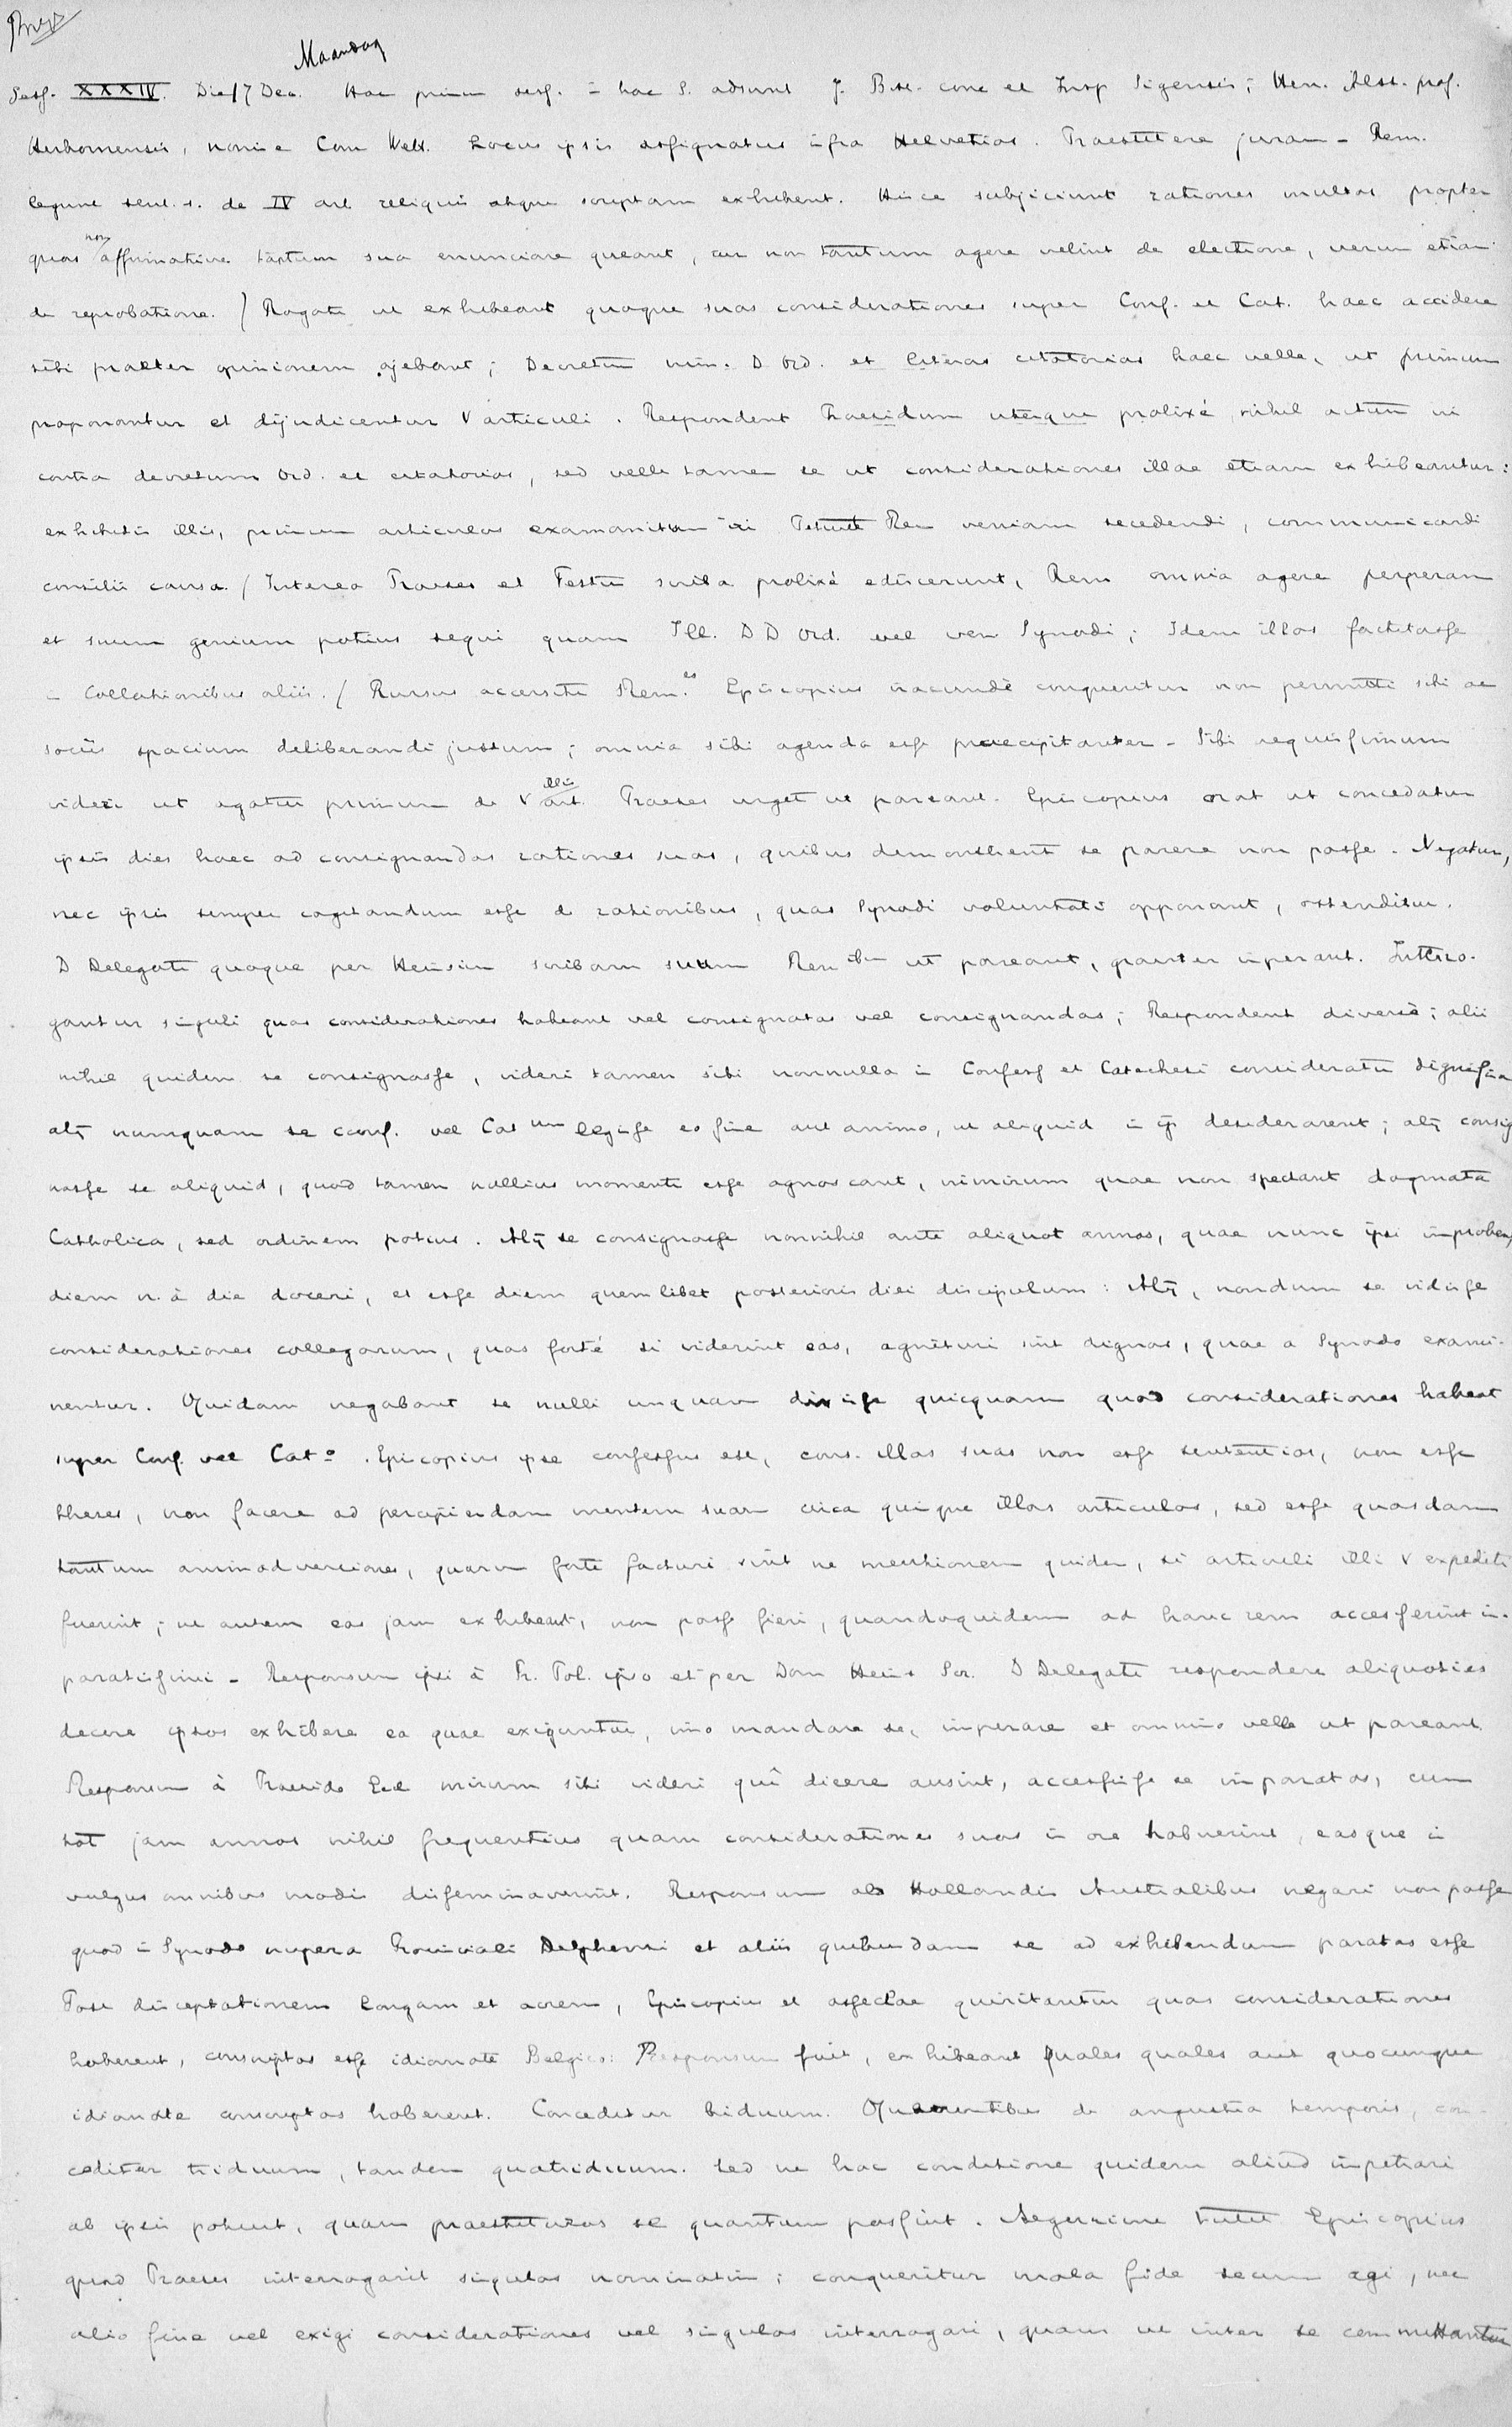 Maandag
Sess. XXXIV. Die 17 Dec. Hac primum sess. in hac S. adsunt J. Bist. conc et Insp Sigensis; Hen. Alst. prof.
Herbornensis, nomine Com Wett. Locus ipsis assignatus infra Helvetios. Praestitere juram - Rem.
legunt sent. s. de IV art. reliquis atque scriptam exhibent. Hisce subjiciunt rationes multas propter
quas non affirmative tantum sua enunciare queant, cur non tantum agere velint de electione, verum etiam
de reprobatione. / Rogati ut exhibeant quoque suas considerationes super Conf. et Cat. haec accidere
sibi praeter opinionem ajebant; Decretum nim. D Ord. et literas citatorias haec velle, ut primum
proponantur et dijudicentur V articuli. Respondent Praesidum uterque prolixé, nihil actum iri
contra decretum Ord. et citatorias, sed velle tamen se ut considerationes illae etiam exhibeantur:
exhibitis illis, primum articulos examinatum iri Petunt Rem veniam secedendi, communicandi
consilii causa. / Interea Praeses et Festus scriba prolixé edisserunt, Rem omnia agere perperam
et suum genium potius sequi quam Ill. D D Ord. vel ven Synodi; Idem illos factitasse
in Collationibus aliis. / Rursus accersiti Rem.es Episcopius iracundè conqueritur non permitti sibi ac
sociis spacium deliberandi justum; omnia sibi agenda esse praecipitanter - Sibi aequissimum
videri ut agatur primum de V illis art. Praeses urget ut pareant. Episcopius orat ut concedatur
ipsis dies haec ad consignandas rationes suas, quibus demonstrent se parere non posse. Negatur,
nec ipsis semper cogitandum esse de rationibus, quas Synodi voluntati opponant, ostenditur.
D Delegati quoque per Heinsium scribam suum Rem ibus ut pareant, graviter imperant. Interro-
gantur singuli quas considerationes habeant vel consignatas vel consignandas; Respondent diversè; alii
nihil quidem se consignasse, videri tamen sibi nonnulla in Confess et Catechesi consideratu dignissima
alij numquam se conf. vel Cat um legisse eo fine aut animo, ut aliquid in ijs desiderarent; alij consig
nasse se aliquid, quod tamen nullius momenti esse agnoscant, nimirum quae non spectant dogmata
Catholica, sed ordinem potius. Alij se consignasse nonnihil ante aliquot annos, quae nunc ipsi improbent,
diem n. à die doceri, et esse diem quemlibet posterioris diei discipulum: Alij, nondum se vidisse
considerationes collegarum, quas forté si viderint eas, agnituri sint dignas, quae a Synodo exami-
nentur. Quidam negabant se nulli unquam dixisse quicquam quod considerationes habeat
super Conf. vel Cat. Episcopius ipse confessus est, cons. illas suas non esse sententias, non esse
theses, non facere ad percipiendam mentem suam circa quinque illos articulos, sed esse quasdam
tantum animadversiones, quarum forte facturi sint ne mentionem quidem, si articuli illi V expediti
fuerint; ut autem eas jam exhibeant, non posse fieri, quandoquidem ad hanc rem accesserint im-
paratissimi - Responsum ipsi à Pr. Pol. ipso et per Dom Heins Scr. D Delegati respondere aliquoties
decere ipsos exhibere ea quae exiguntur, imo mandare se, imperare et omnino velle ut pareant.
Responsum à Praeside Ecl mirum sibi videri quî dicere ausint, accessisse se imparatos, cum
tot jam annos nihil frequentius quam considerationes suas in ore habuerint, easque in
vulgus omnibus modis disseminaverint. Responsum ab Hollandis Australibus negari non posse
quod in Synodo nupera Provinciali Delphensi et aliis quibusdam se ad exhibendum paratos esse
Post disceptationem longam et acrem, Episcopius et asseclae quiritantur quas considerationes
haberent, conscriptas esse idiomate Belgico: Responsum fuit, exhibeant quales quales aut quocumque
idiomate conscriptas haberent. Conceditur biduum. Quaerentibus de angustia temporis, con-
ceditur triduum, tandem quatriduum. Sed ne hac conditione quidem aliud impetrari
ab ipsis potuit, quam praestituros se quantum possint. Aegerrime tulit Episcopius
quod Praeses interrogarit singulos nominatim; conqueritur mala fide secum agi, nec
alio fine vel exigi considerationes vel singulos interrogari, quam ut inter se committantur